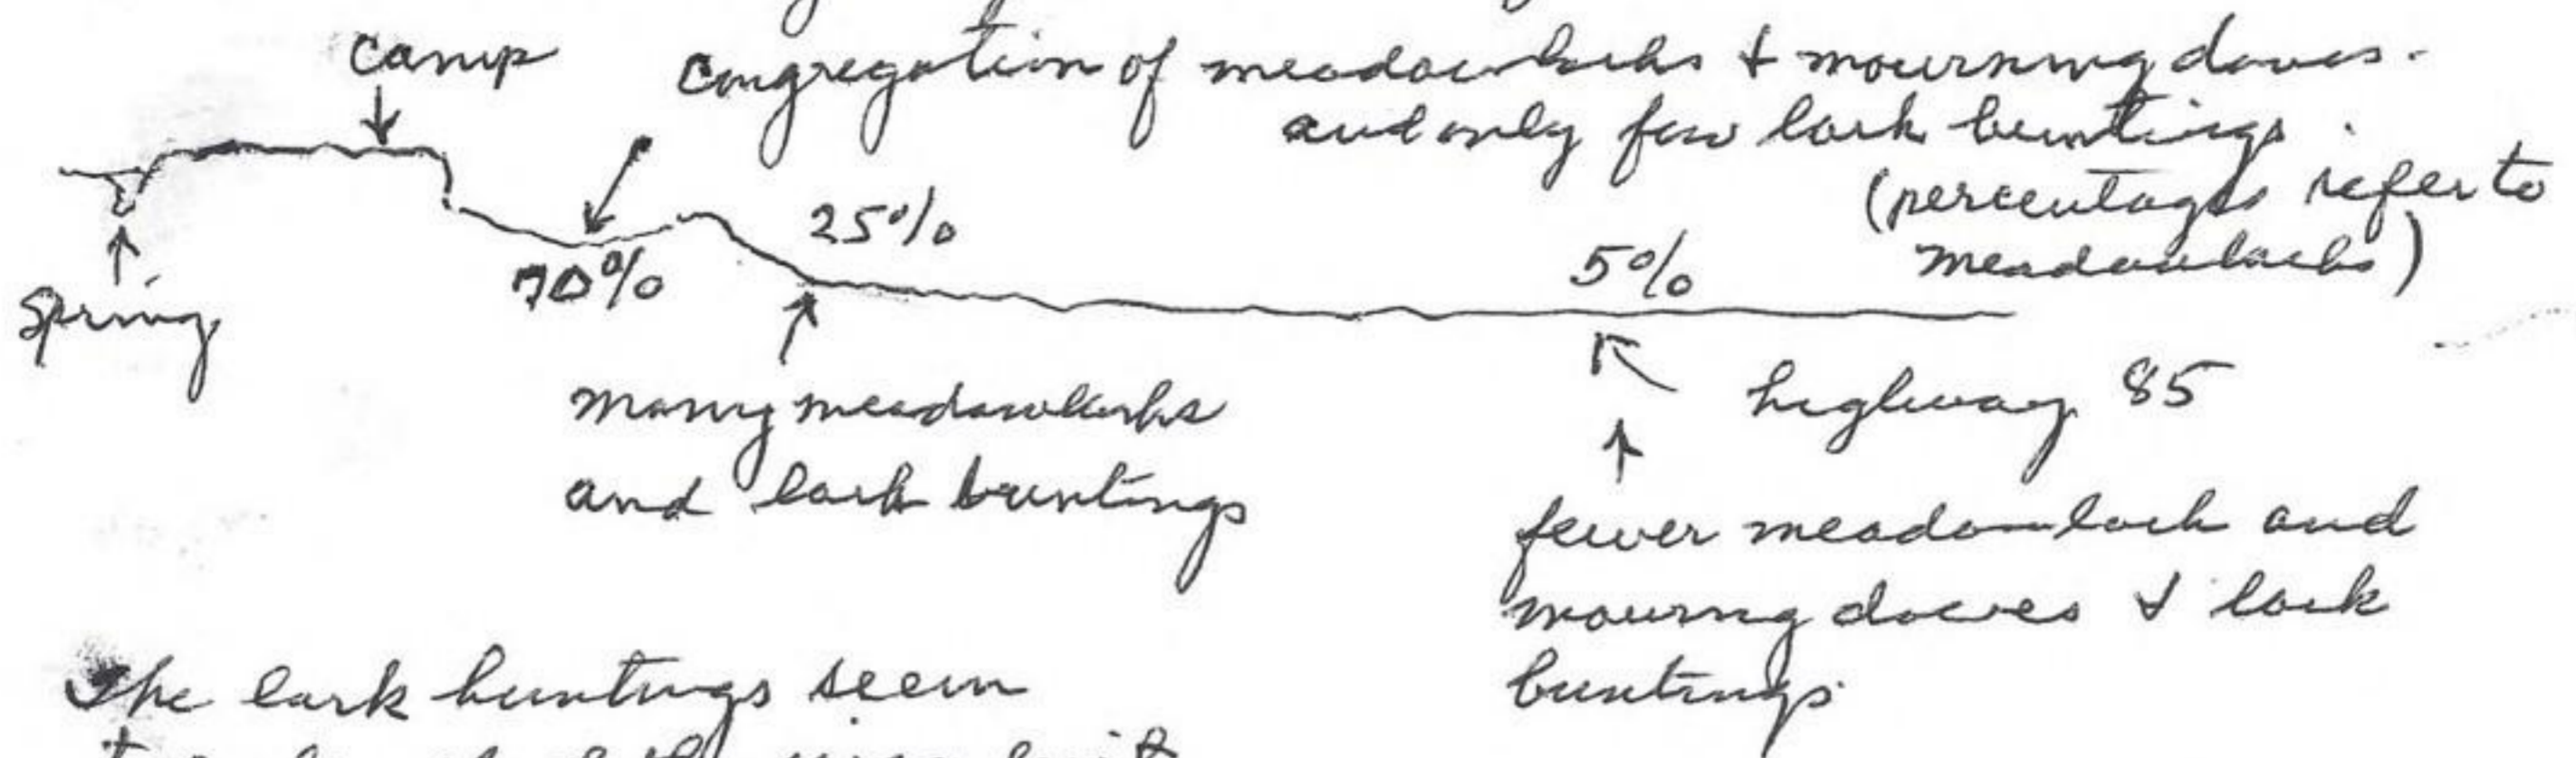 camp
congregation of meadowlarks & mourning doves.
and only few lark buntings.
(percentages refer to
meadowlarks)
25%
70%
5%
spring
many meadowlarks
and lark buntings
highway 85
fewer meadowlark and
mourng doves & lark
buntings.
The lark buntings seem